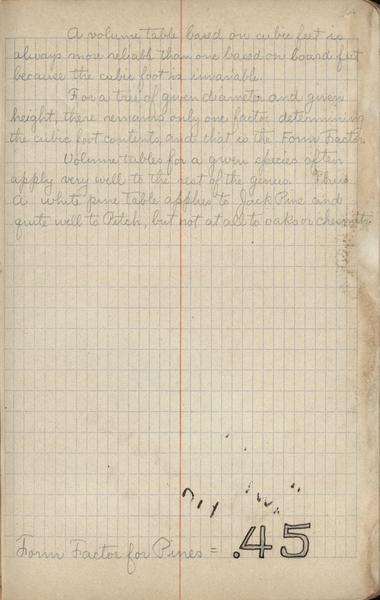 A volume table based on cubic feet is
always more reliable than one based on board feet
because the cubic foot is invariable.
For a tree of given diameter and given
height, there remains only one factor determining
the cubic foot contents, and that is the Form Factor.
Volume tables for a given species often
apply very well to the rest of the genus. Thus
a white pine table applies to Jack Pine and
quite well to Pitch, but not at all to oaks or chestnuts.
Form Factor for Pines = .45